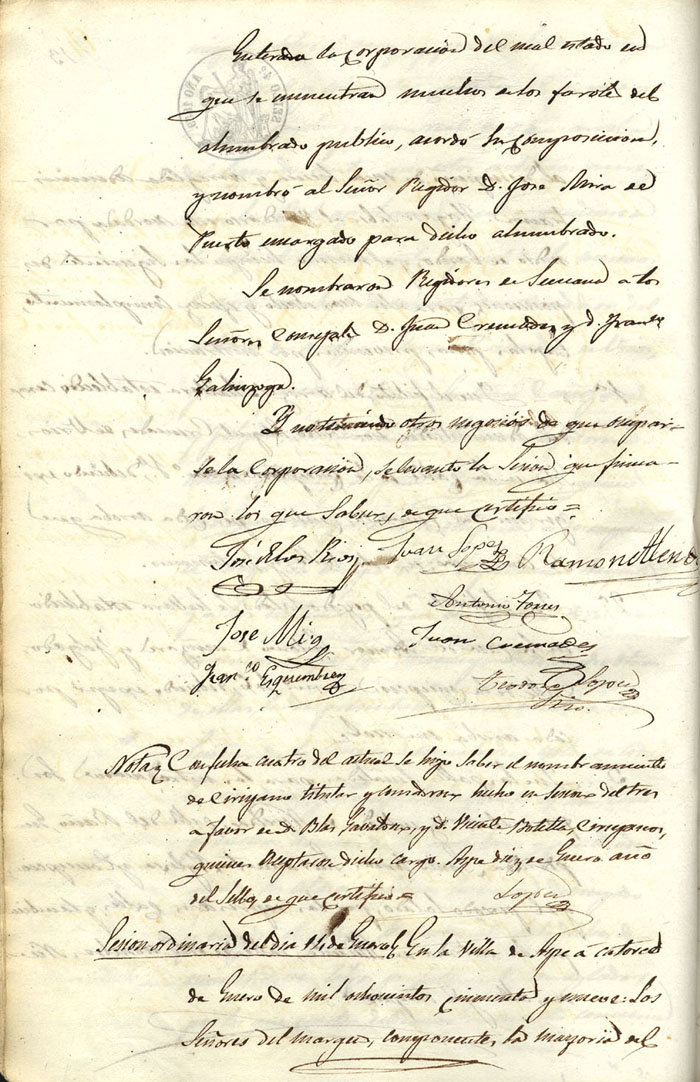 Enterada la corporacion del mal estado en
que se encuentran muchos de los faroles del
alumbrado publico, acordó su composicion,
y nombró al Señor Regidor D. Jose Mira de
Puerto encargado para dicho alumbrado.
Se nombraron Regidores de Semana a los
Señores Concejales D. Juan Cremades y D. Franco
Galinzoga.
Y no teniendo otros negocios de que ocupar-
se la Corporacion, se levanto la Sesion que firma-
ron los que saben, de que certifico =
José de los Rios Juan Lopez Ramon
Antonio Torres
Jose Mira Juan Cremades
Franco Esquembre Teodoro Lopez
Srio.
Nota Con fecha cuatro del actual se hizo saber el nombramiento
de Cirujano titular y comadron, hecho en sesion del tres
a favor de D. Blas y D. Vicente Botella, Cirujanos,
quienes aceptaron dicho cargo. Aspe diez de Enero año
del Sello, de que certifico = Lopez
Sesion ordinaria del dia 14 de Enero En la Villa de Aspe á catorce
de Enero de mil ochocientos cincuenta y nueve: Los
Señores del margen, componentes la mayoria del